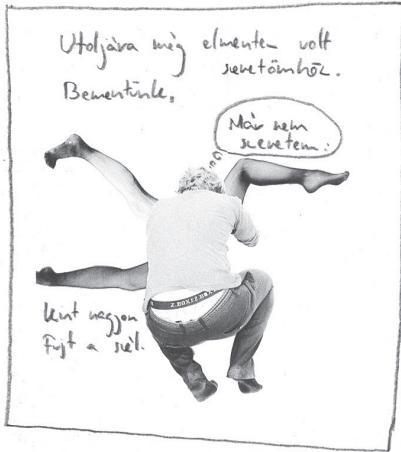 Utoljára még elmentem volt
szeretőmhöz.
Bementünk,
Már nem
szeretem.
Z.BOXER
kint nagyon
Fújt a szél.